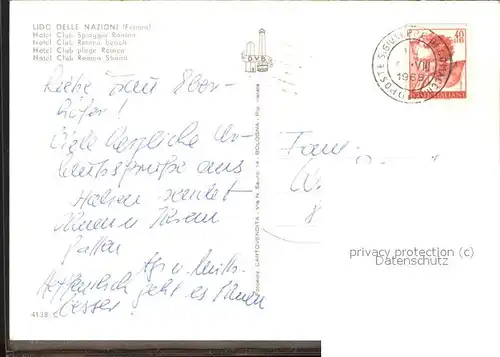 LIDO DELLE NAZIONI (Ferrara)
Hotel Club Spiaggia Romea
Hotel Club Romea beach
Hotel Club plage Romea
Hotel Club Romea Strand
D.V.B.
Liebe Frau Ober-
höfer!
Viele herzliche Ur-
laubsgrüße aus
Italien sendet
Ihnen u. Ihrem
Gatten
u.
Hoffentlich geht es Ihnen
besser!
4138
CARTOVENDITA - Via N. Sauro, 14 - BOLOGNA - Rip. vietata
POSTE S. GIUSEPPE DI COMACCHIO
VIII
1968
40
POSTE ITALIANE
Fam.
privacy protection by
Datenschutz